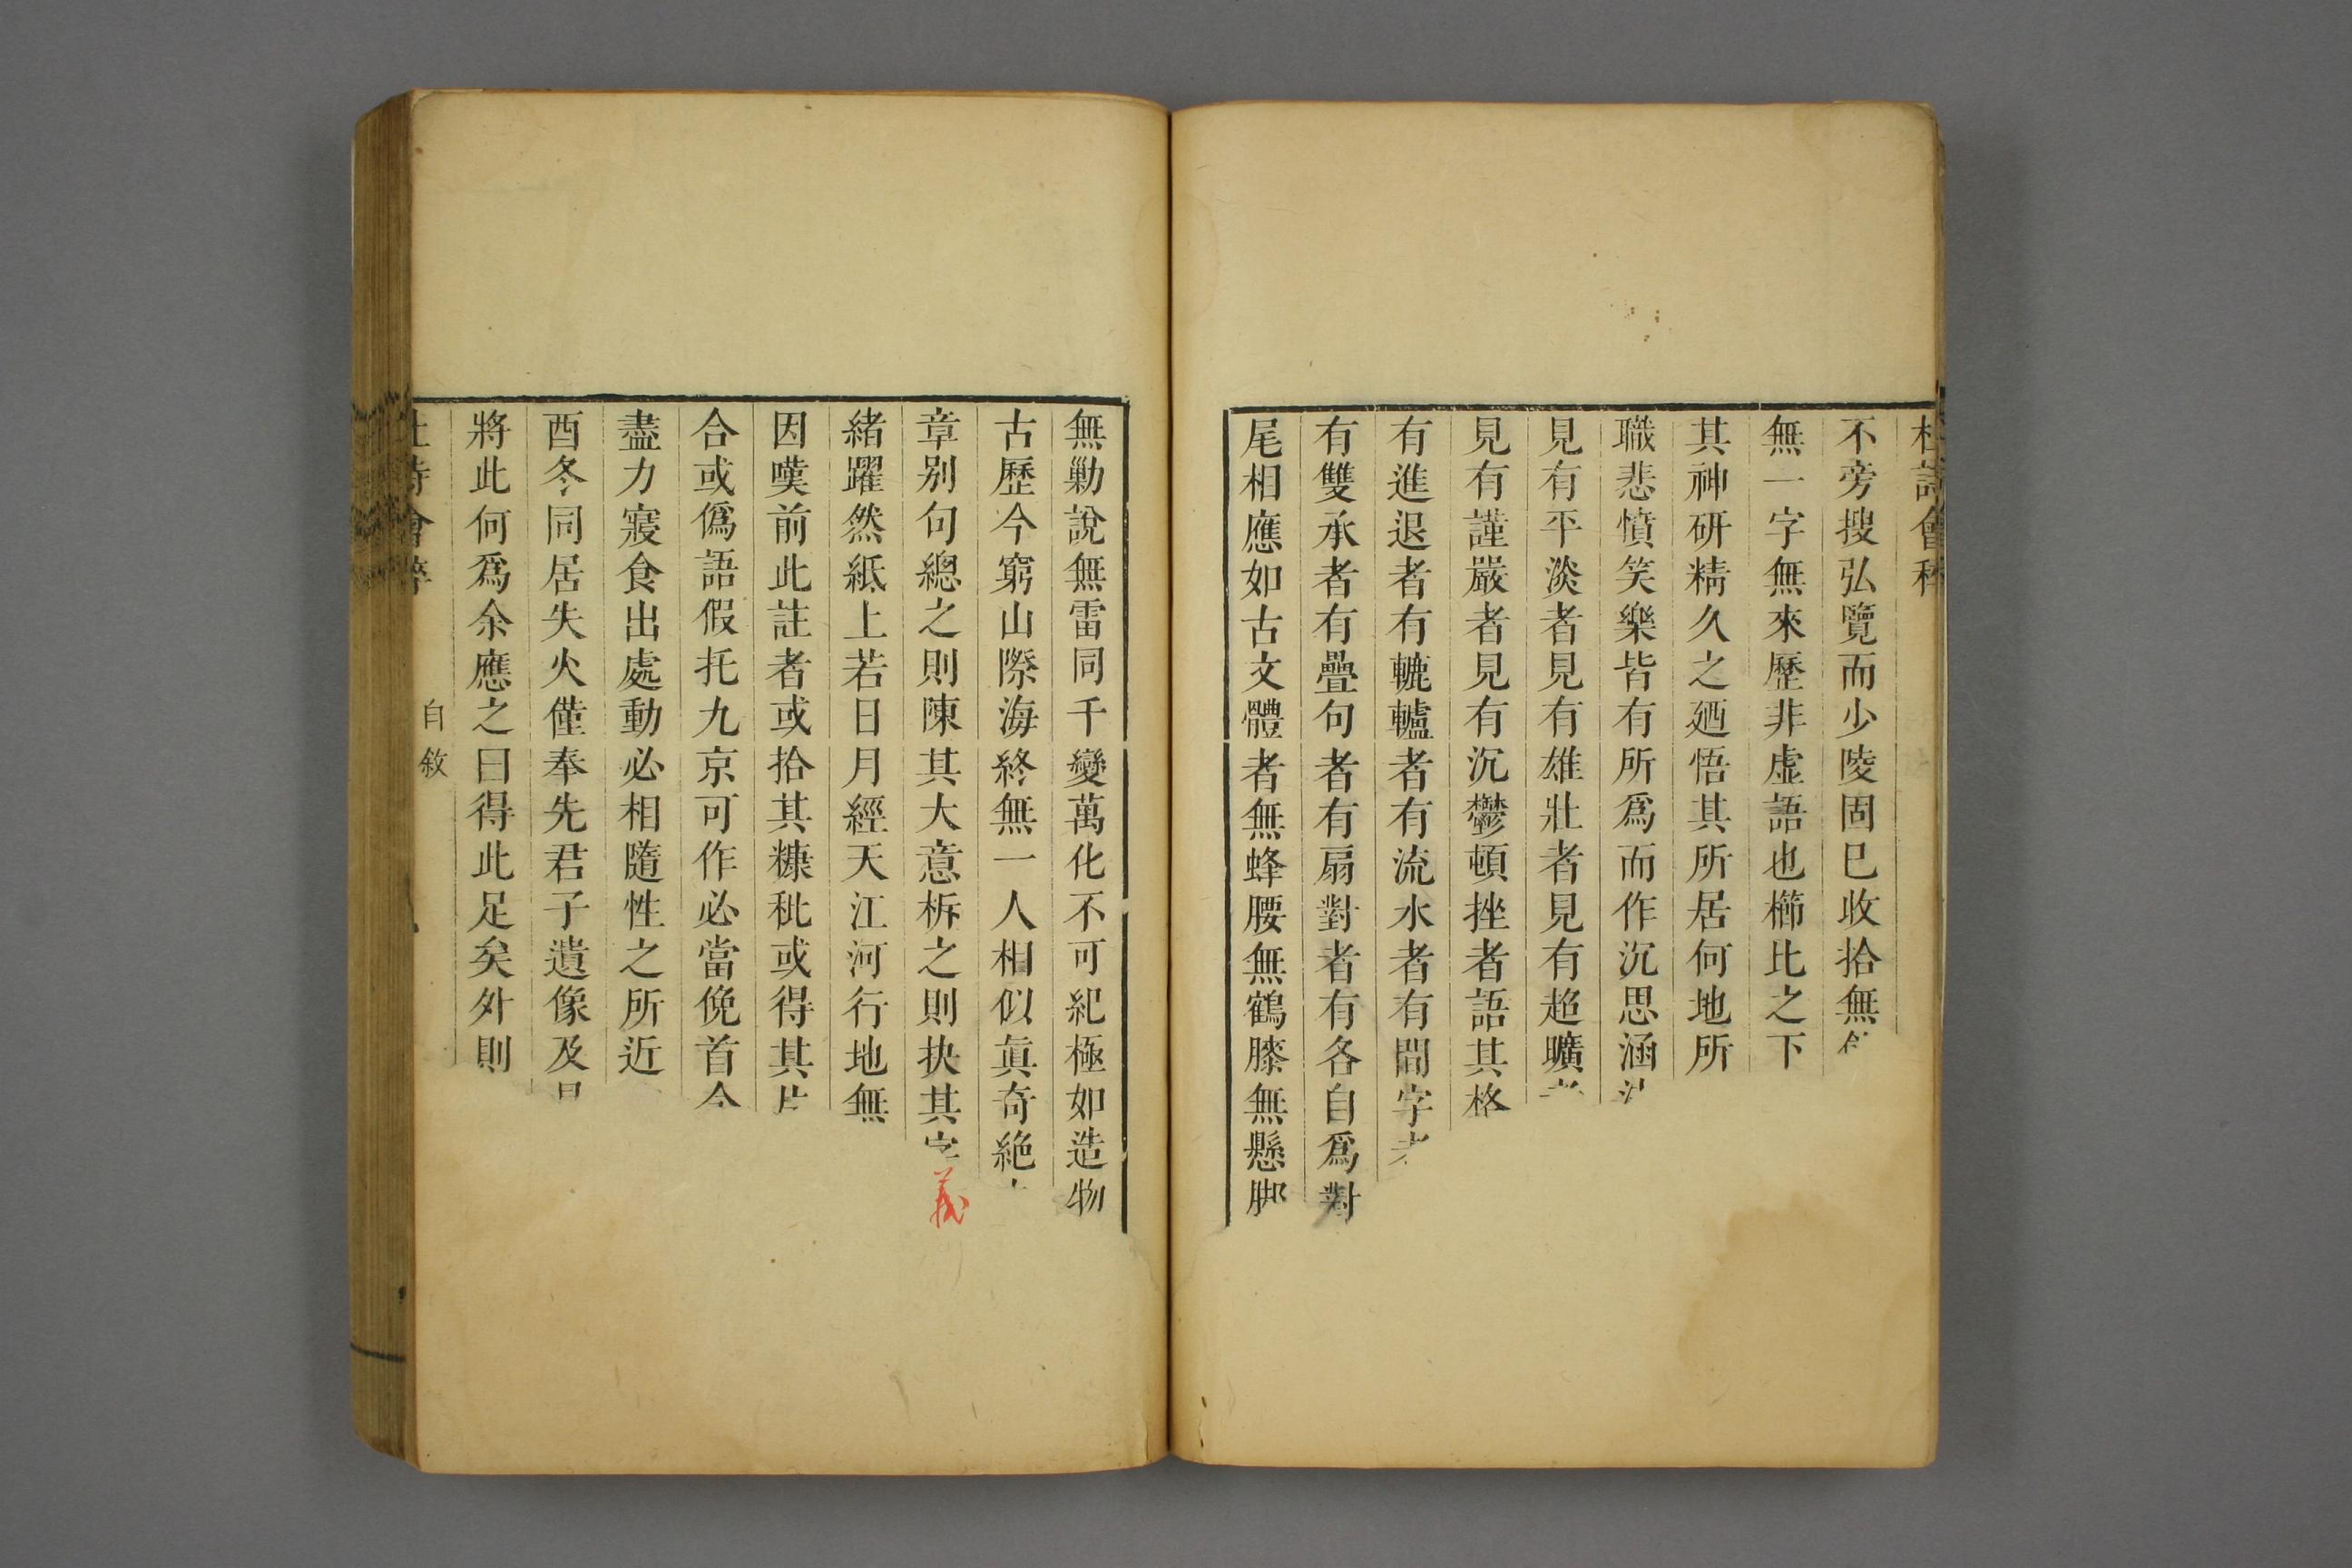 不旁搜弘覽而少陵固巳收拾無
無一字無來歷非虛語也櫛比之下
其神研精久之廼悟其所居何地所
職悲憤笑樂皆有所爲而作沉思涵
見有平淡者見有雄壯者見有超曠
見有謹嚴者見有沉鬱頓挫者語其格
有進退者有轆轤者有流水者有間字
有雙承者有疊句者有扇對者有各自爲對
尾相應如古文體者無蜂腰無鶴膝無懸脚
無勦說無雷同千變萬化不可紀極如造物
古歷今窮山際海終無一人相似眞奇絕
章别句總之則陳其大意柝之則抉其字義
緒躍然紙上若日月經天江河行地無
因嘆前此註者或拾其糠秕或得其片
合或僞語假托九京可作必當俛首
盡力寢食出處動必相隨性之所近
酉冬同居失火僅奉先君子遺像及
將此何爲余應之曰得此足矣外則
自敘